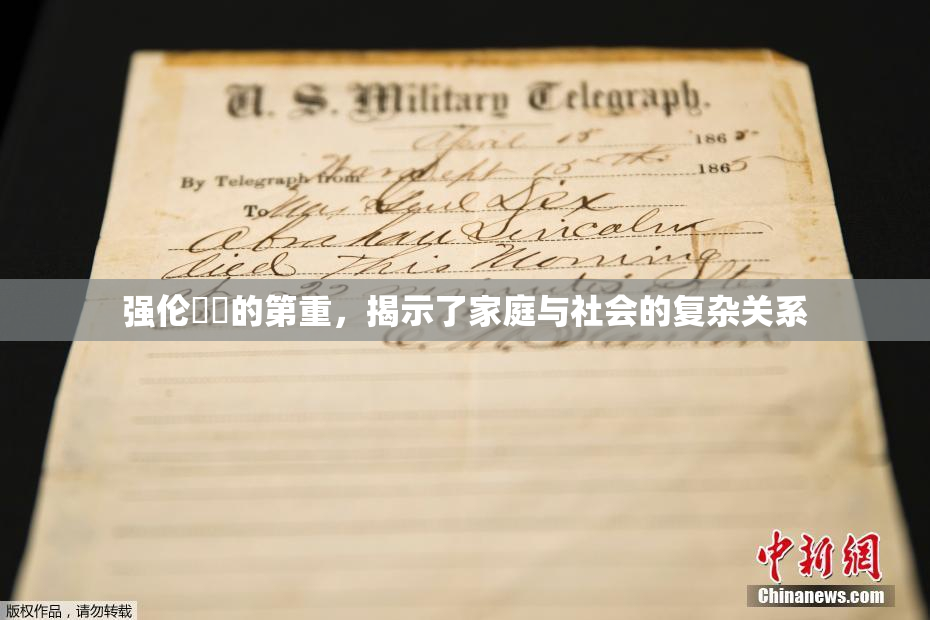 U. S. Military Telegraph.
April 15 1865
By Telegraph from War Dept 15th 1865
To Maj Genl Dix
Abraham Lincoln
died This Morning
22 minutes after
强伦的第重，揭示了家庭与社会的复杂关系
E. M. Stanton
中新网
Chinanews.com
版权作品，请勿转载